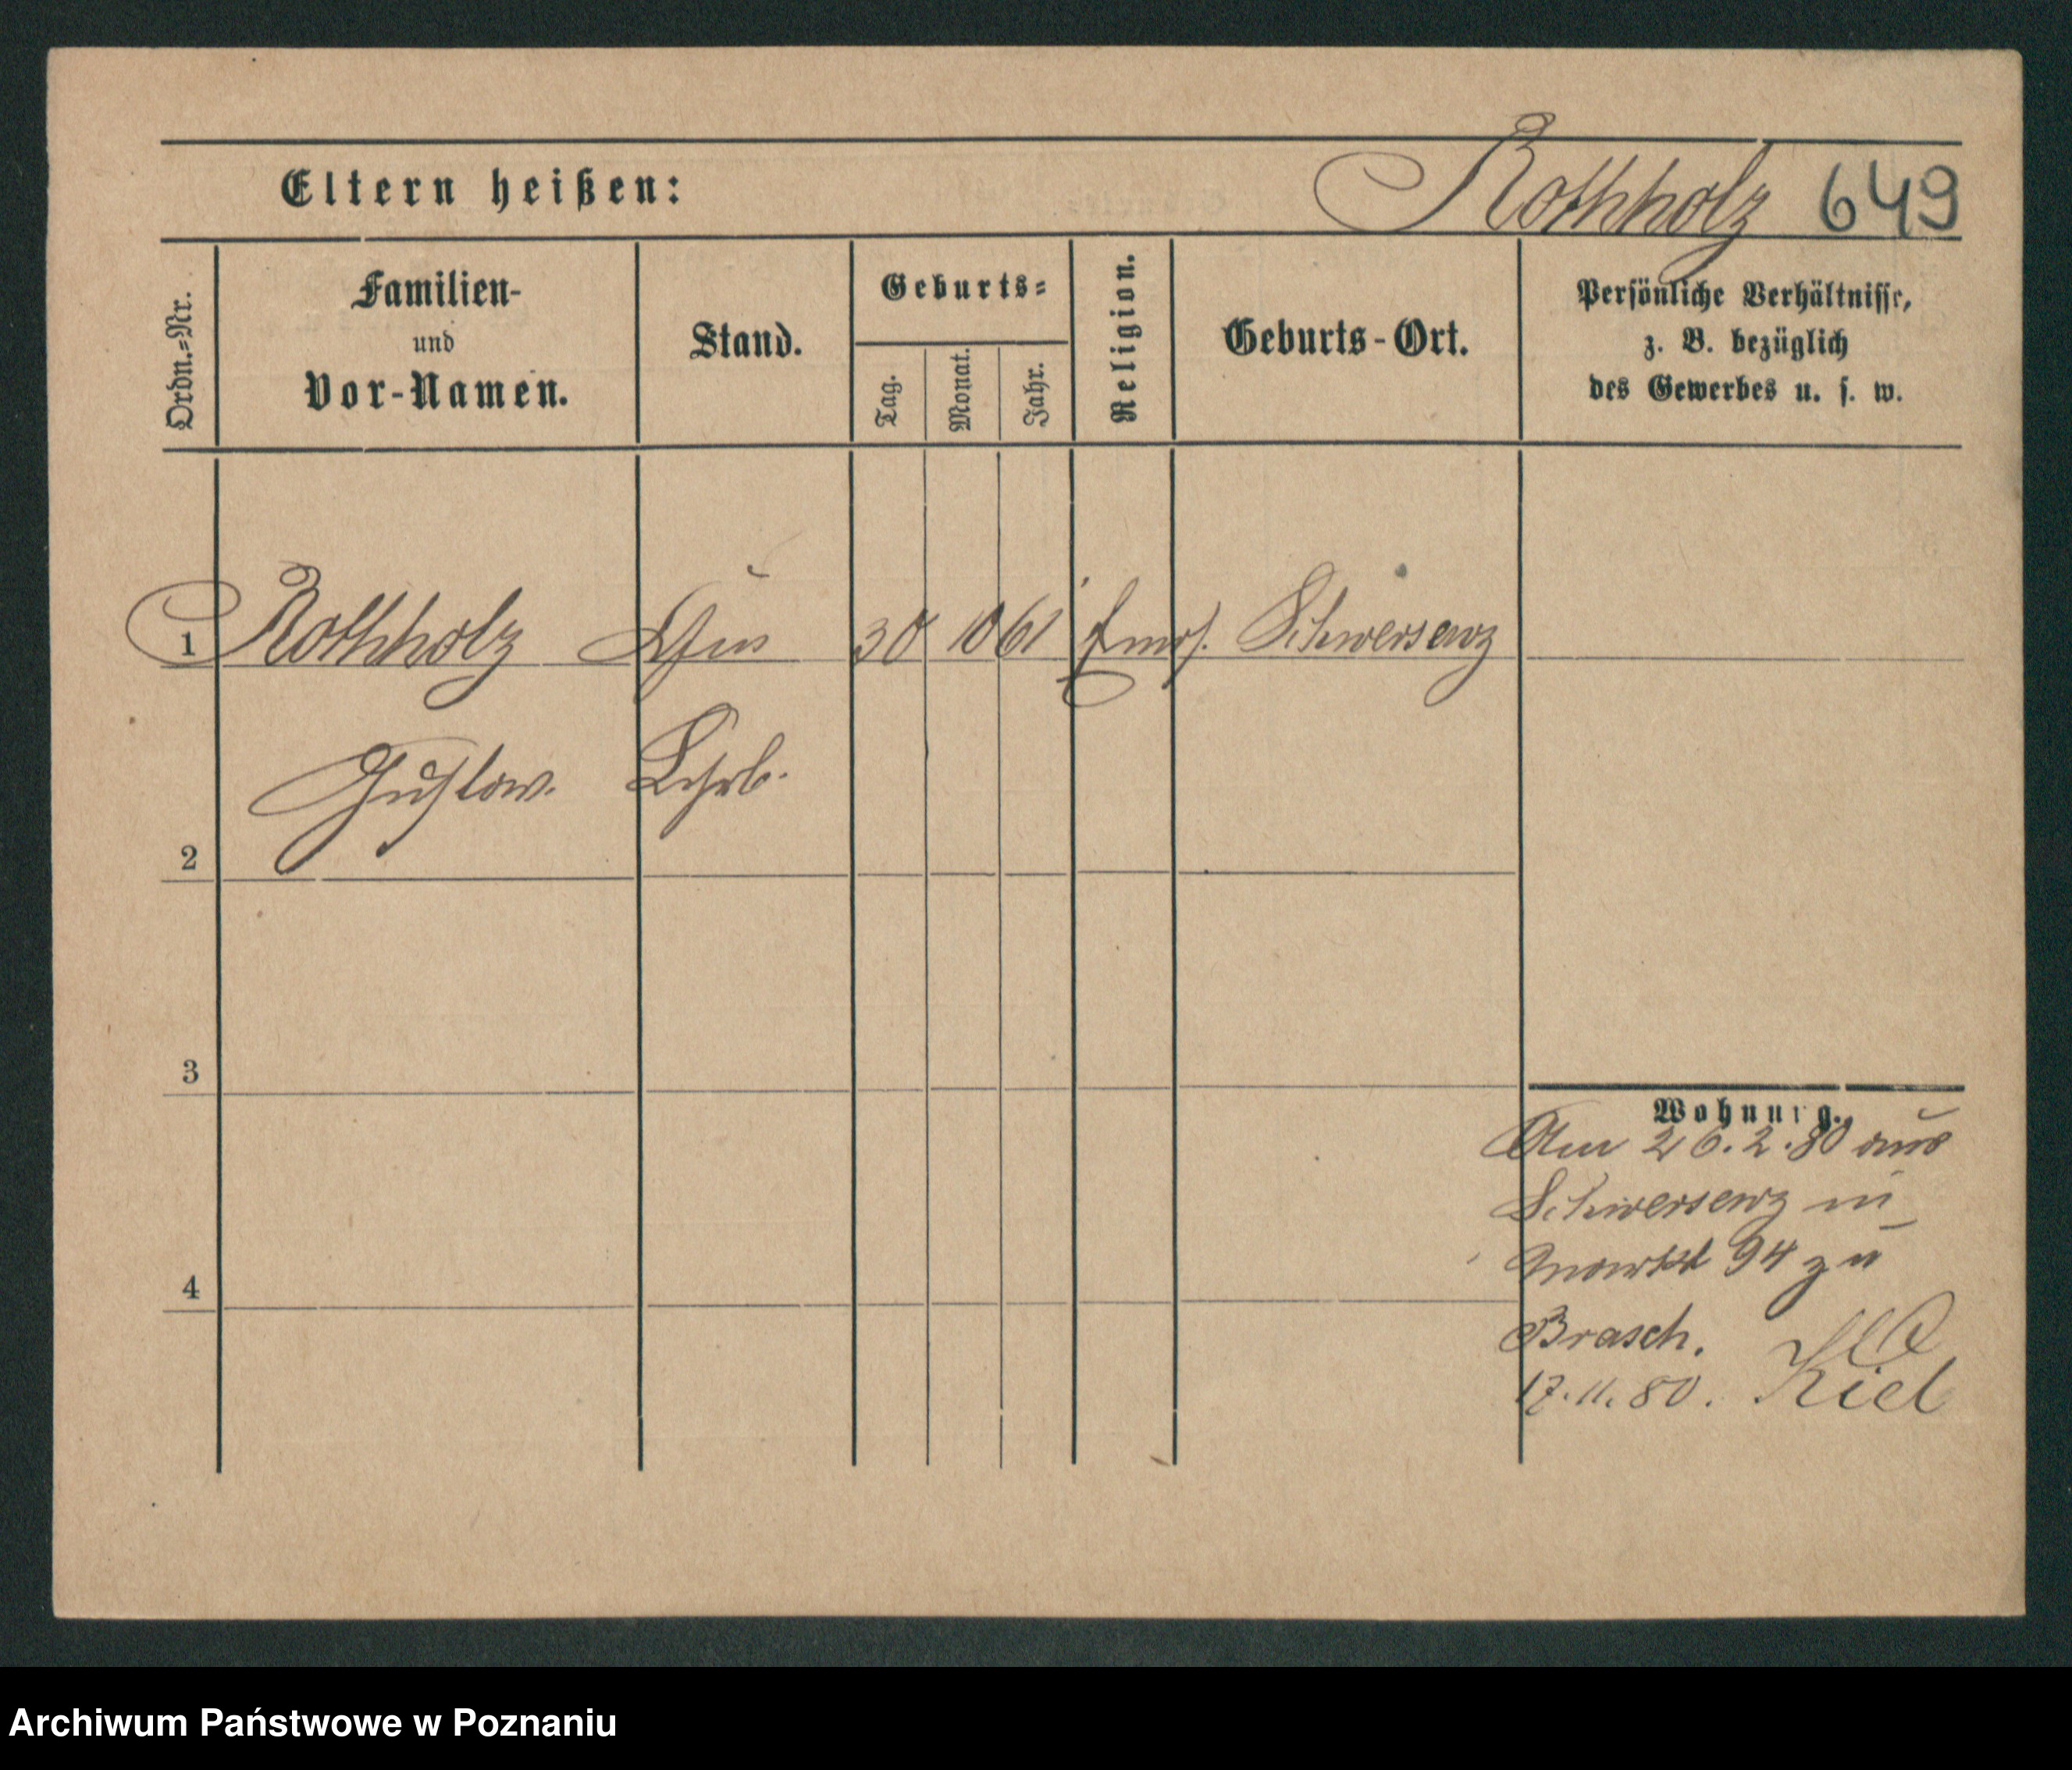 Eltern heißen: Rothholz 649
Ordn.=Nr. Familien- und Vor-Namen. Stand. Geburts= Tag. Monat. Jahr. Religion. Geburts-Ort. Persönliche Verhältnisse, z. B. bezüglich des Gewerbes u. s. w.
1 Rothholz 30 10 61 Schwersenz
Gustav.
2
3
Wohnung.
Am 26.2.80 aus
Schwersenz in
4 Markt 94 zu
Brasch.
17.11.80. Kiel
Archiwum Państwowe w Poznaniu